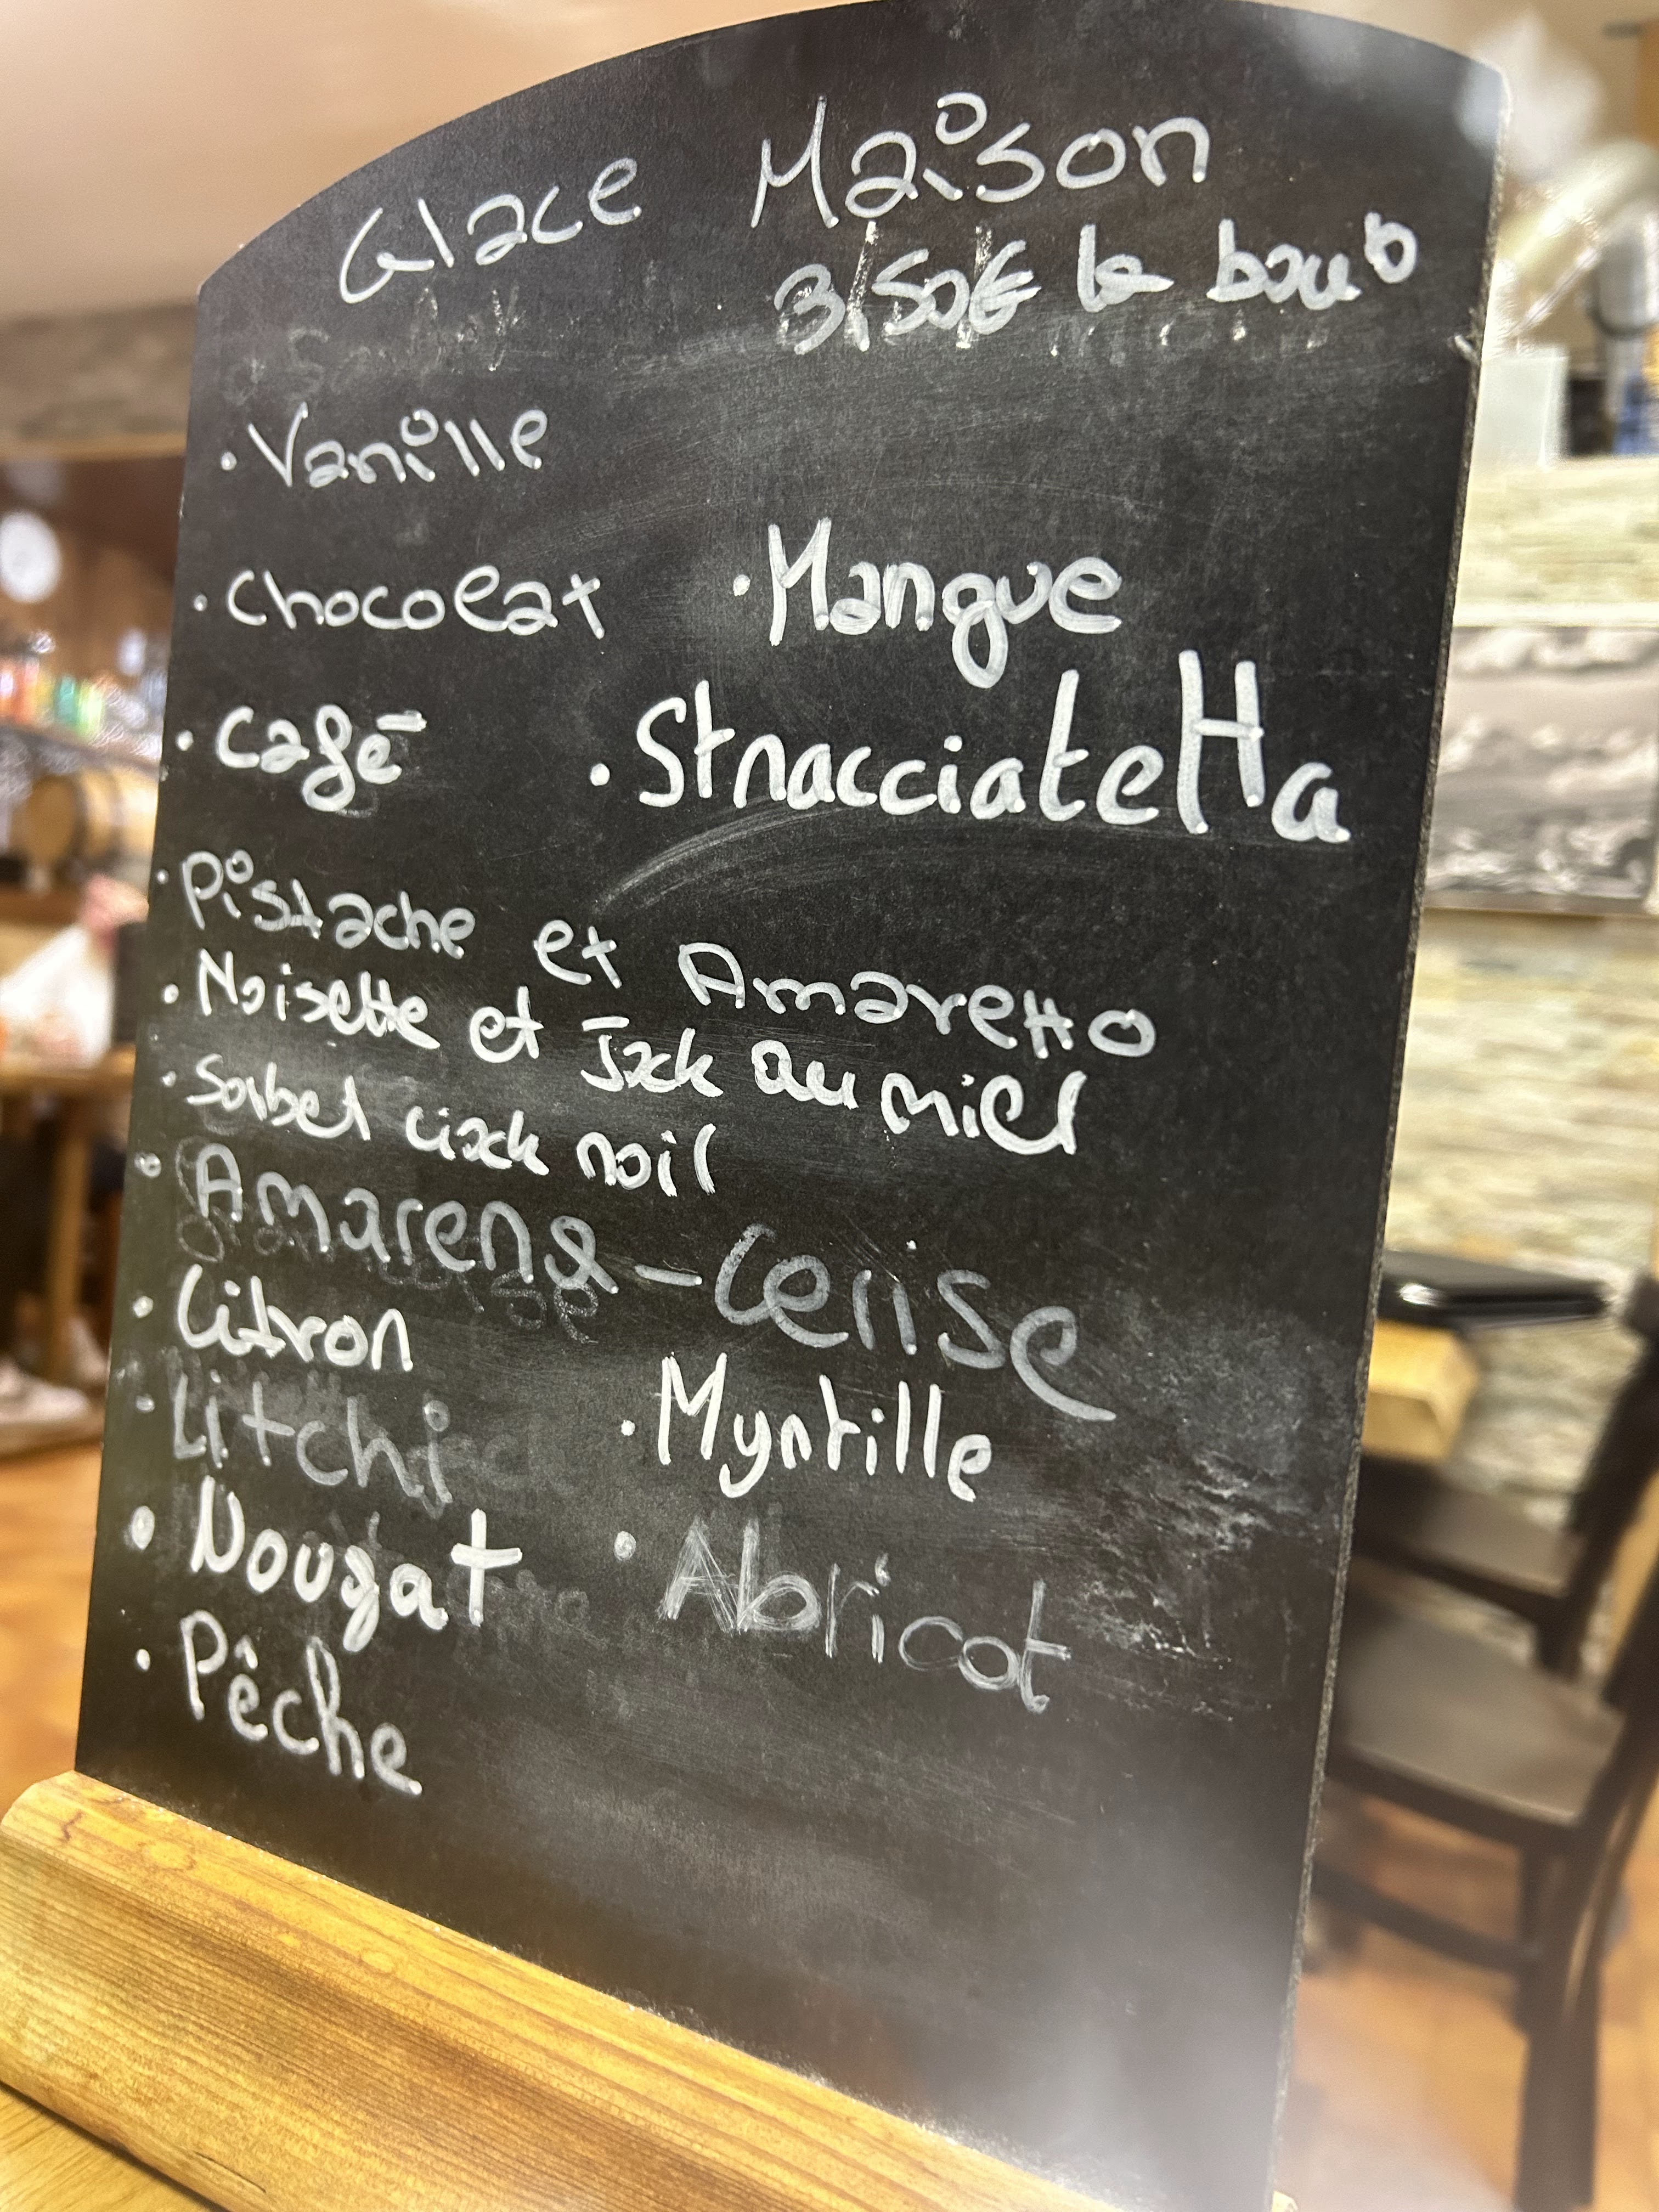 Glace Maison
3,50€ la boule
• Vanille
• Chocolat
• Mangue
• Café
• Stracciatella
• Pistache et Amaretto
• Noisette et Jack au miel
• Sorbet ciack noil
• Amarena - Cerise
• Citron
- Litchi
• Myrtille
• Nougat
• Abricot
• Pêche